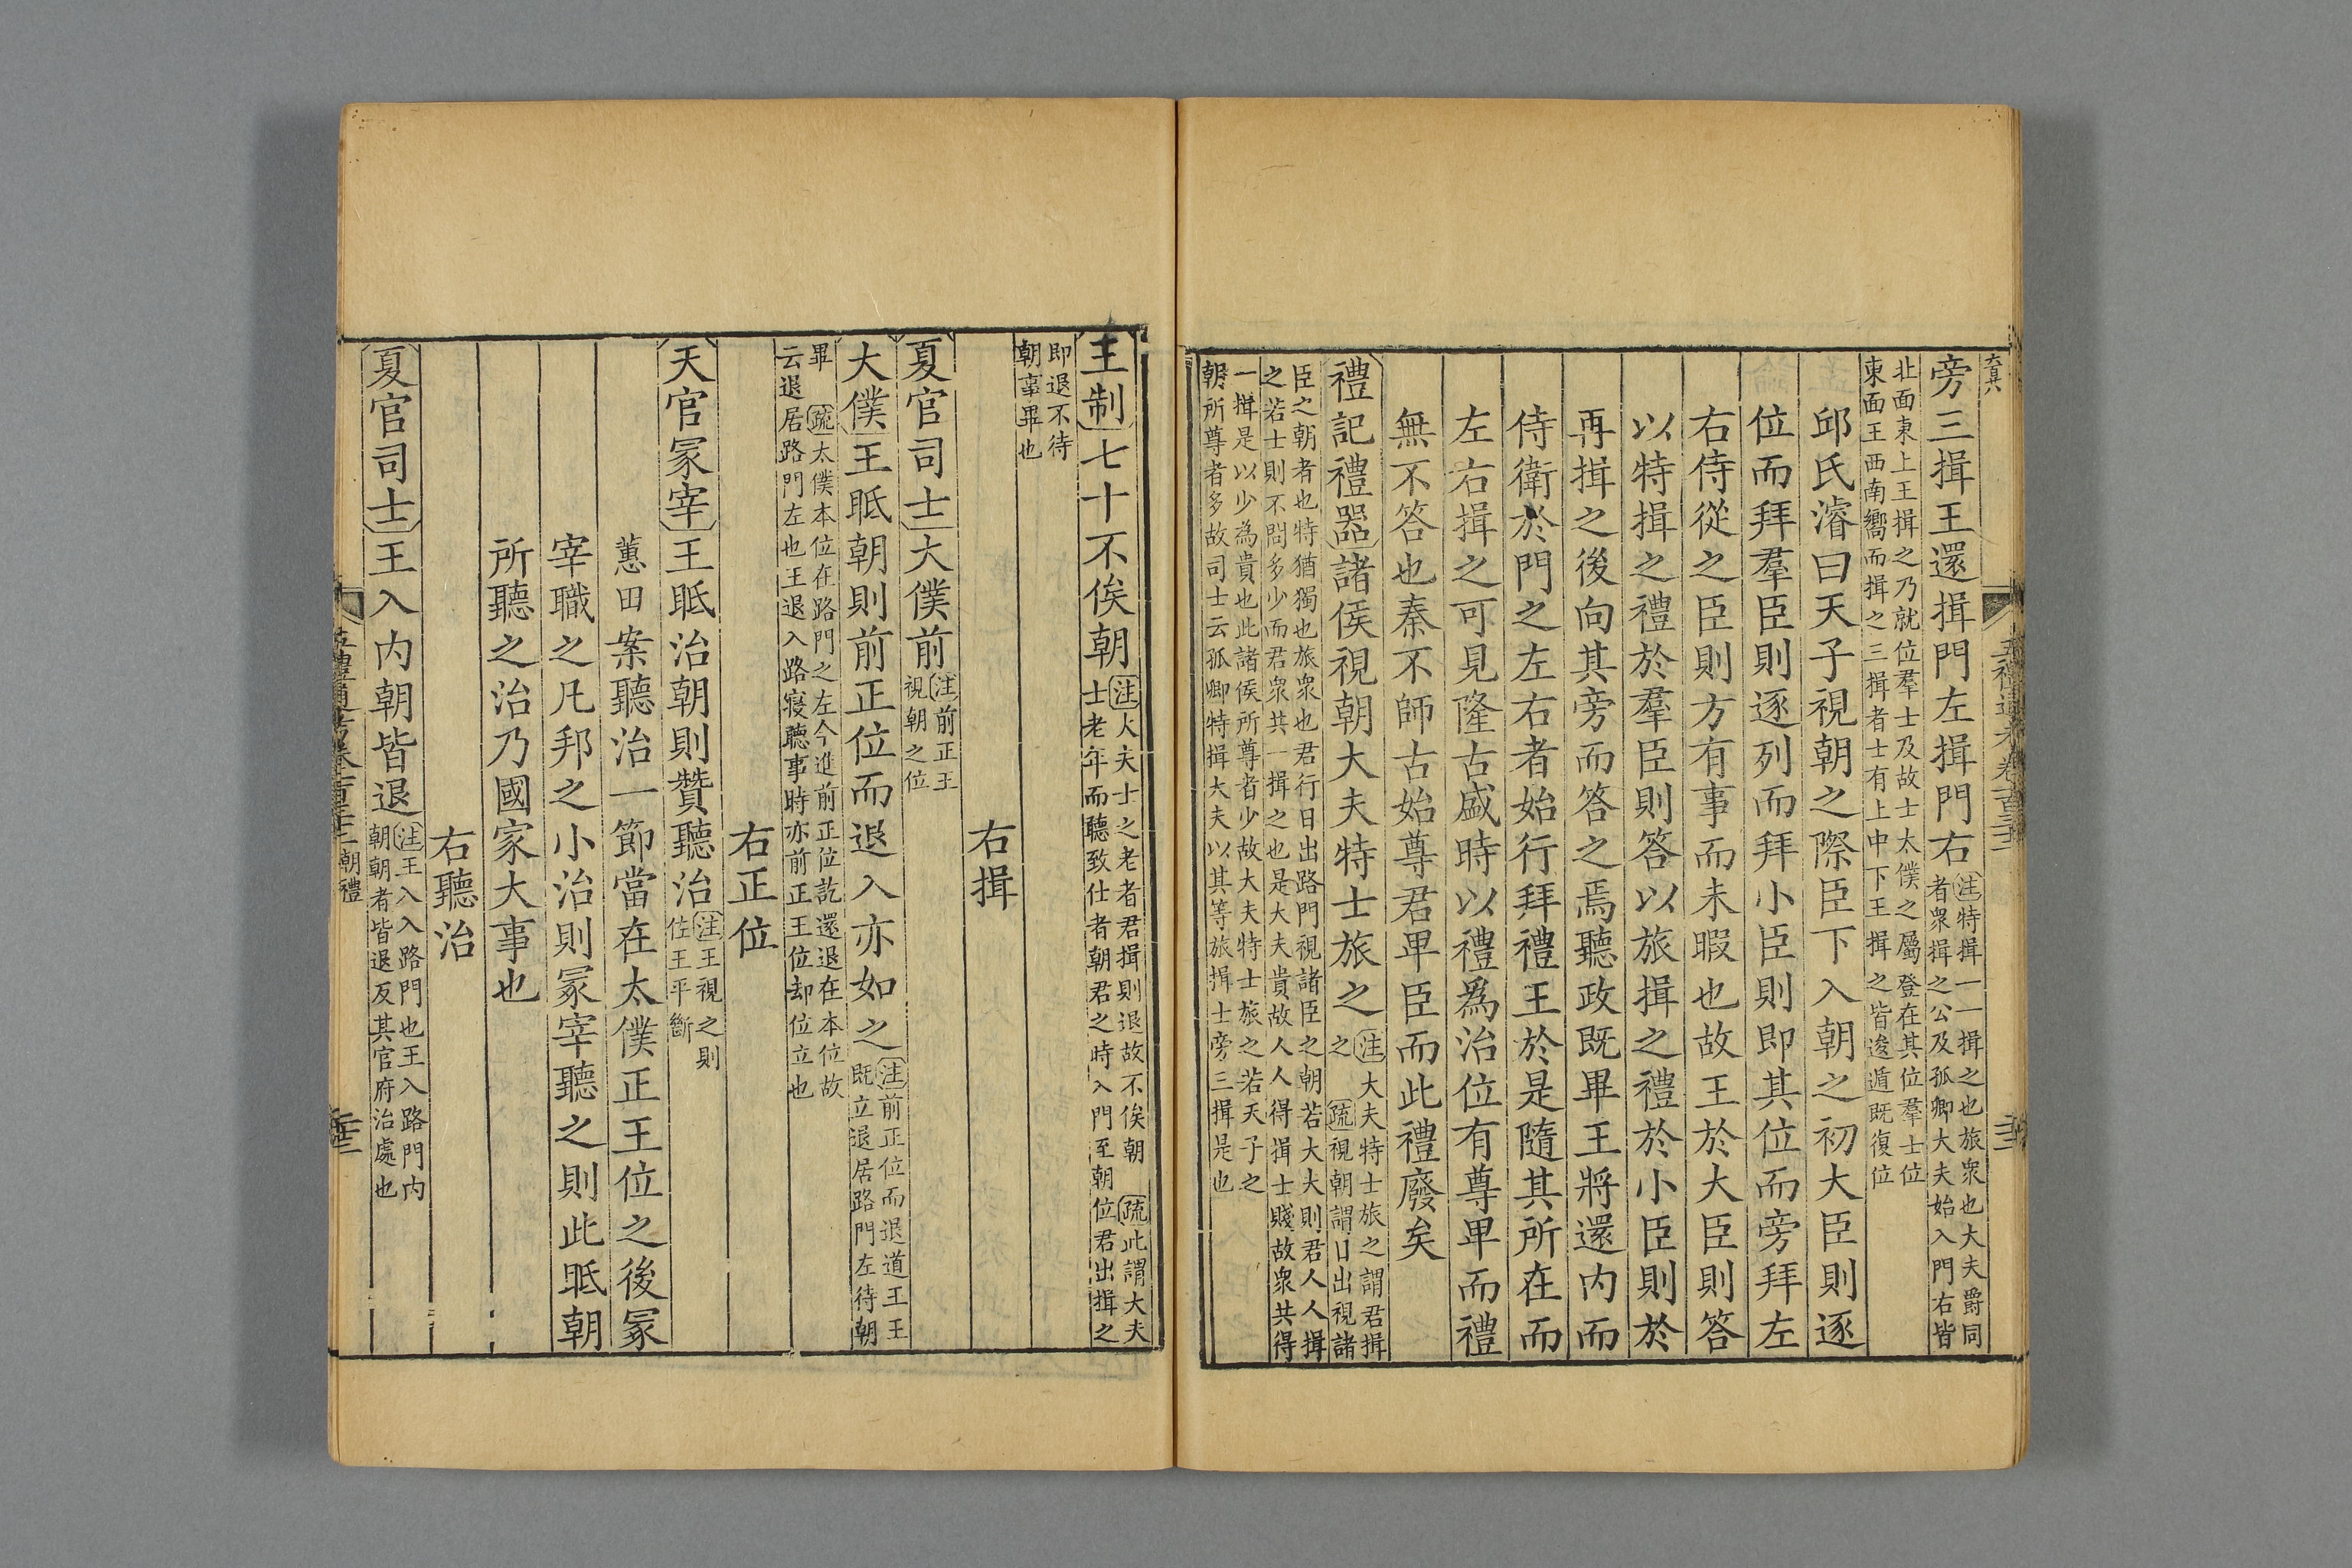 旁三揖王還揖門左揖門右注特揖一一揖之也旅衆也大夫爵同
者衆揖之公及孤卿大夫始入門右皆
北面東上王揖之乃就位羣士及故士太僕之屬登在其位羣士位
東面王西南嚮而揖之三揖者士有上中下王揖之皆逡遁既復位
邱氏濬曰天子視朝之際臣下入朝之初大臣則逐
位而拜羣臣則逐列而拜小臣則即其位而旁拜左
右侍從之臣則方有事而未暇也故王於大臣則答
以特揖之禮於羣臣則答以旅揖之禮於小臣則於
再揖之後向其旁而答之焉聽政既畢王將還内而
侍衛於門之左右者始行拜禮王於是隨其所在而
左右揖之可見隆古盛時以禮爲治位有尊卑而禮
無不答也秦不師古始尊君卑臣而此禮廢矣
禮記禮器諸侯視朝大夫特士旅之注大夫特士旅之謂君揖
之 疏視朝謂日出視諸
臣之朝者也特猶獨也旅衆也君行日出路門視諸臣之朝若大夫則君人人揖
之若士則不問多少而君衆共一揖之也是大夫貴故人人得揖士賤故衆共得
一揖是以少為貴也此諸侯所尊者少故大夫特士旅之若天子之
朝所尊者多故司士云孤卿特揖大夫以其等旅揖士旁三揖是也
王制七十不俟朝注大夫士之老者君揖則退故不俟朝 疏此謂大夫
士老年而聽致仕者朝君之時入門至朝位君出揖之
即退不待
朝事畢也
右揖
夏官司士大僕前注前正王
視朝之位
大僕王眡朝則前正位而退入亦如之注前正位而退道王王
既立退居路門左待朝
畢 疏太僕本位在路門之左今進前正位訖還退在本位故
云退居路門左也王退入路寢聽事時亦前正王位却位立也
右正位
天官冢宰王眡治朝則贊聽治注王視之則
佐王平斷
蕙田案聽治一節當在太僕正王位之後冢
宰職之凡邦之小治則冢宰聽之則此眡朝
所聽之治乃國家大事也
右聽治
夏官司士王入内朝皆退注王入入路門也王入路門内
朝朝者皆退反其官府治處也
朝禮